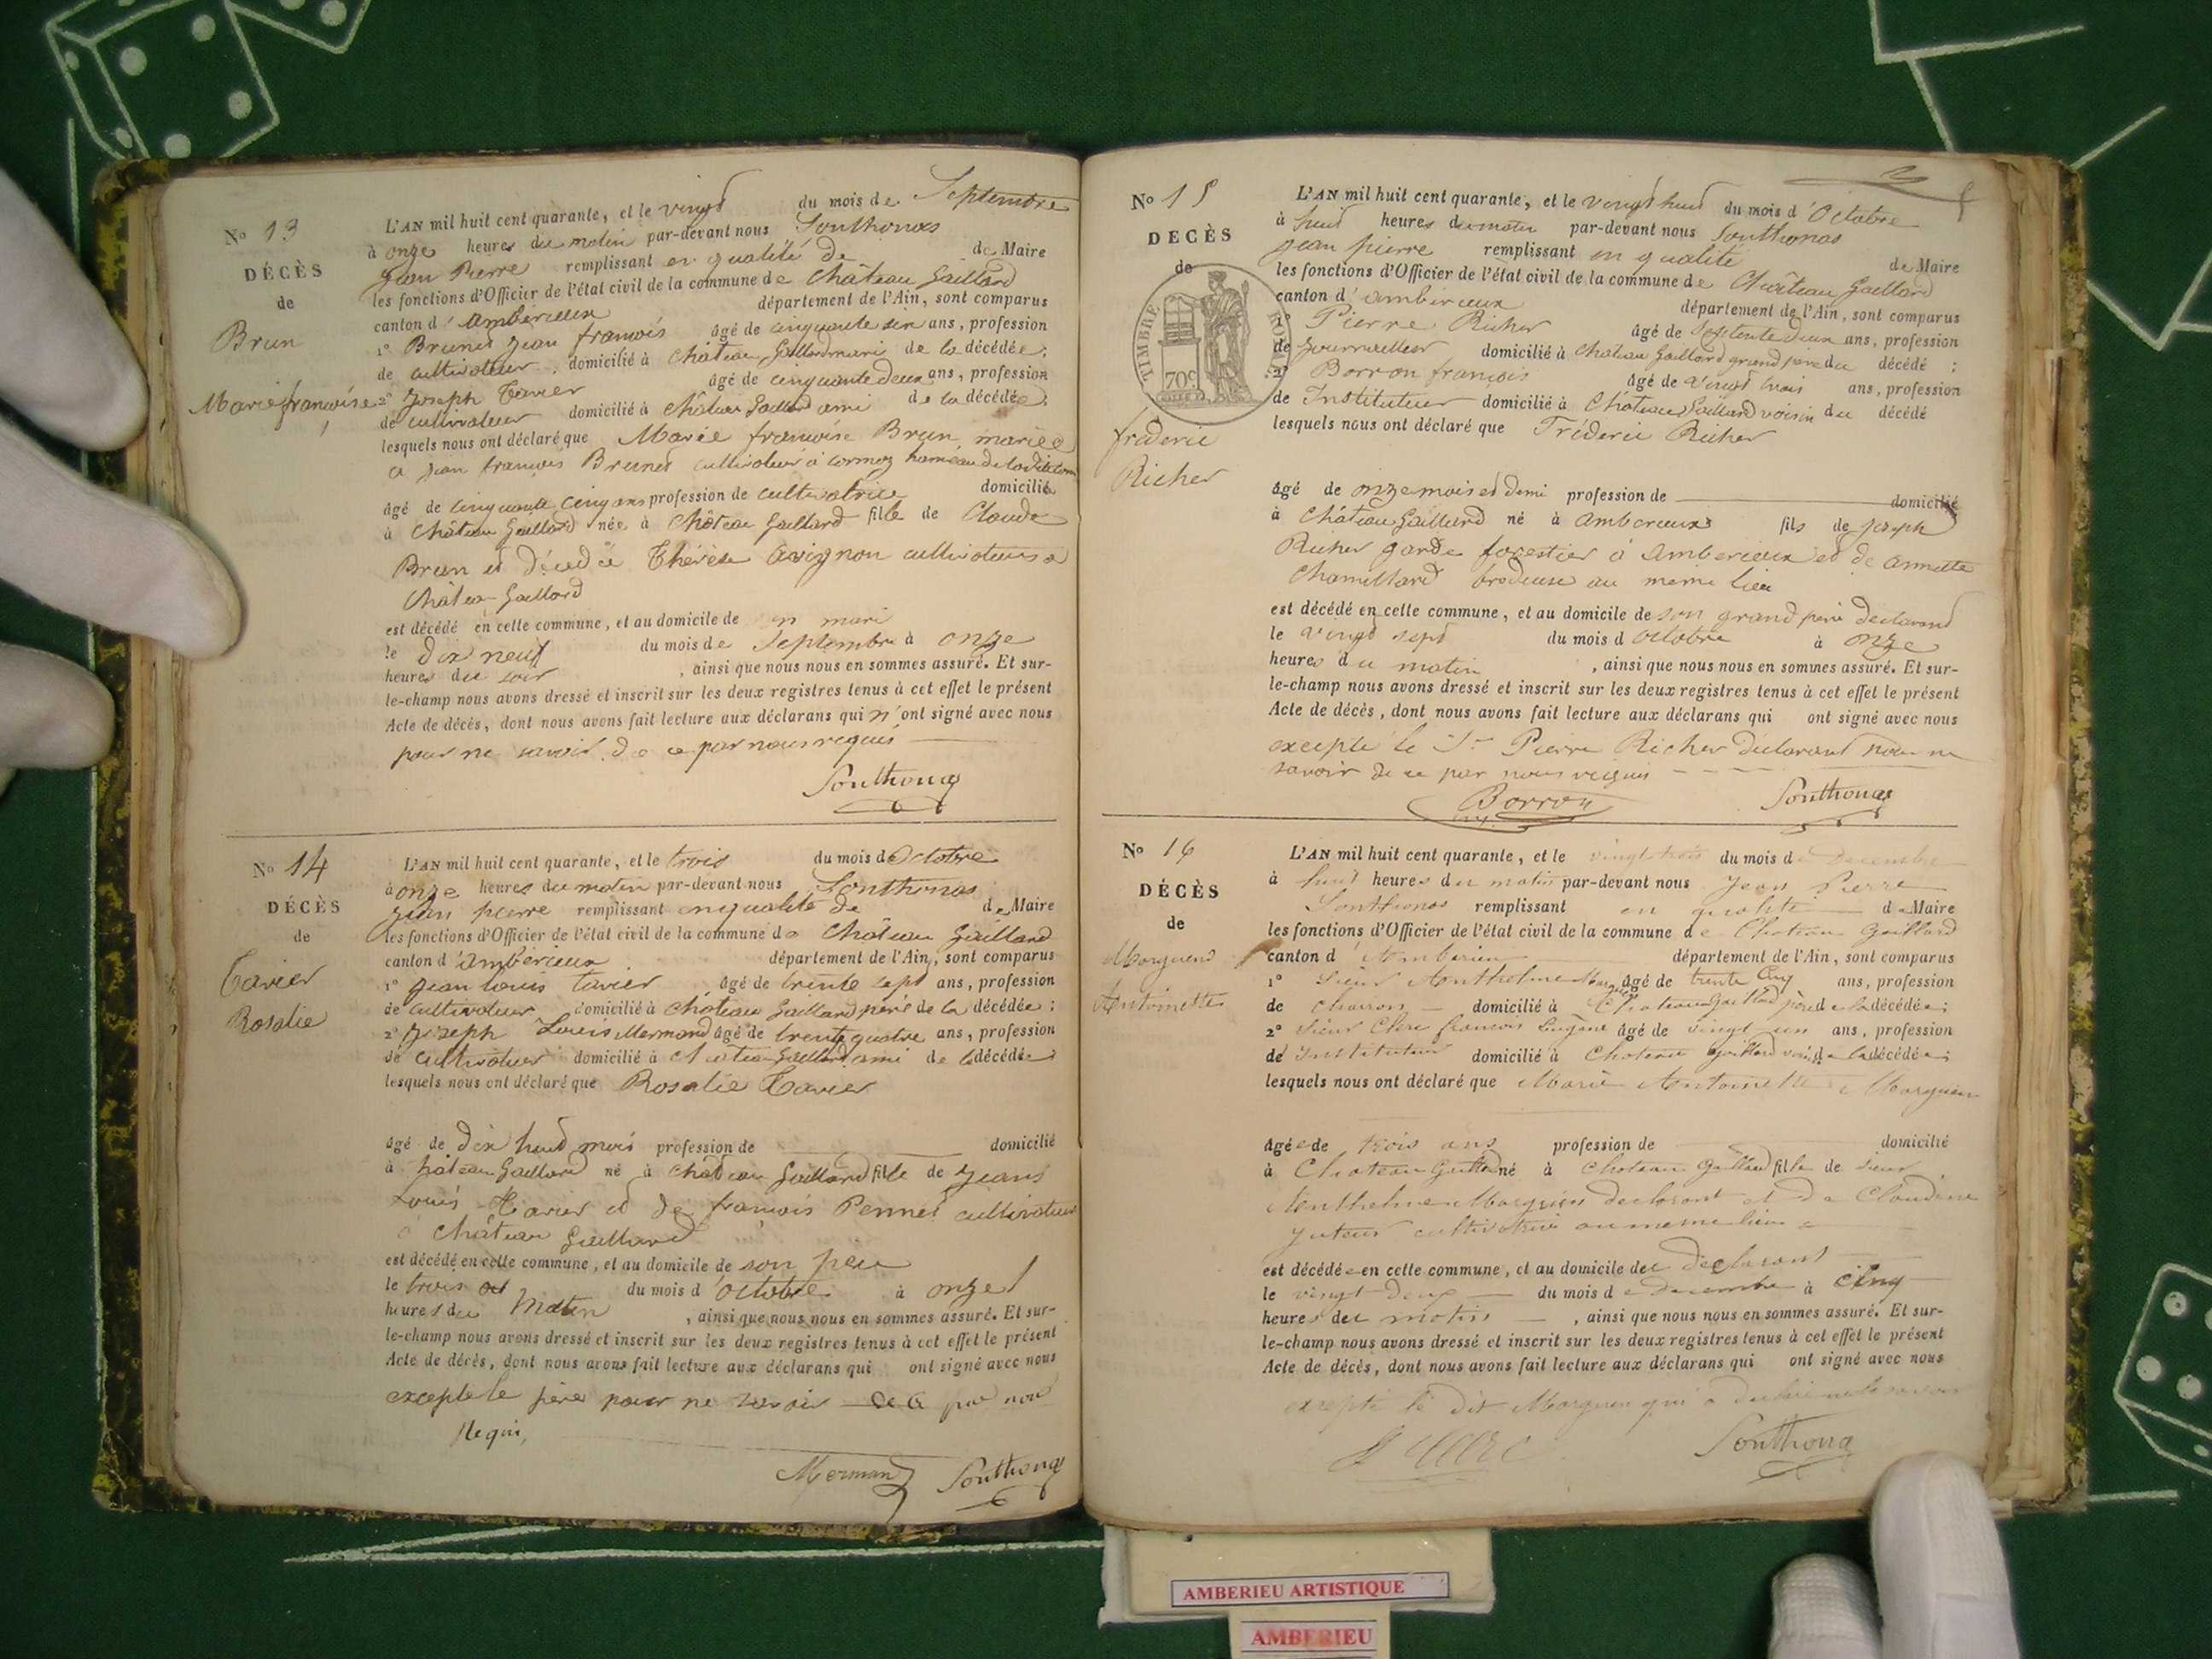 No 13
DÉCÈS
de
Brun
Marie françoise
L'AN mil huit cent quarante, et le vingt du mois de Septembre
à onze heures du matin par-devant nous Sonthonas
jean Pierre remplissant en qualité de de Maire
les fonctions d'Officier de l'état civil de la commune de Château Gaillard
canton d'amberieux département de l'Ain, sont comparus
1° Brunet jean françois âgé de cinquante six ans, profession
de cultivateur, domicilié à château Gaillard mari de la décédée;
2° joseph Tavier âgé de cinquante deux ans, profession
de cultivateur domicilié à château Gaillard ami de la décédée;
lesquels nous ont déclaré que Marie françoise Brun mariée
a jean françois Brunet cultivateur à cormoz hameau de la dite com
âgé de cinquante cinq ans profession de cultivatrice domicilié
à Château Gaillard née à Château Gaillard fille de Claude
Brun et décédée Thérèse avignon cultivateurs à
Château Gaillard
est décédé en cette commune, et au domicile de mari
le dix neuf du mois de Septembre à onze
heures du soir, ainsi que nous nous en sommes assuré. Et sur-
le-champ nous avons dressé et inscrit sur les deux registres tenus à cet effet le présent
Acte de décès, dont nous avons fait lecture aux déclarans qui n'ont signé avec nous
pour ne savoir de ce par nous requis
Sonthonas
No 14
DÉCÈS
de
Tavier
Rosalie
L'AN mil huit cent quarante, et le trois du mois d'Octobre
à onze heures du matin par-devant nous Sonthonas
jean pierre remplissant en qualité de de Maire
les fonctions d'Officier de l'état civil de la commune de Château Gaillard
canton d'amberieux département de l'Ain, sont comparus
1° jean louis tavier âgé de trente sept ans, profession
de cultivateur domicilié à château Gaillard père de la décédée;
2° joseph Louis Mermand âgé de trente quatre ans, profession
de cultivateur domicilié à château Gaillard ami de la décédée;
lesquels nous ont déclaré que Rosalie Tavier
âgé de dix huit mois profession de domicilié
à château Gaillard né à château Gaillard fille de jean
Louis Tavier et de françois Pennet cultivateur
à château Gaillard
est décédé en cette commune, et au domicile de son père
le trois du mois d'octobre à onze
heures du Matin, ainsi que nous nous en sommes assuré. Et sur-
le-champ nous avons dressé et inscrit sur les deux registres tenus à cet effet le présent
Acte de décès, dont nous avons fait lecture aux déclarans qui ont signé avec nous
excepte le père pour ne savoir de ce par nous
Requi,
Mermand Sonthonas
No 15
DECÈS
de
TIMBRE ROYAL
70c
frederic
Richer
L'AN mil huit cent quarante, et le vingt huit du mois d'Octobre
à huit heures du matin par-devant nous Sonthonas
jean pierre remplissant en qualité de Maire
les fonctions d'Officier de l'état civil de la commune de Château Gaillard
canton d'amberieux département de l'Ain, sont comparus
1° Pierre Richer âgé de Septente deux ans, profession
de journailler domicilié à chateau Gaillard grand père du décédé;
2° Borron françois âgé de vingt trois ans, profession
de Instituteur domicilié à Château Gaillard voisin du décédé
lesquels nous ont déclaré que Fréderic Richer
âgé de onze mois et demi profession de domicilié
à Château Gaillard né à amberieux fils de joseph
Richer garde forestier à Amberieux et de annette
Chamillard brodeuse au meme lieu
est décédé en cette commune, et au domicile de son grand père declarant
le vingt sept du mois d octobre à onze
heures du matin, ainsi que nous nous en sommes assuré. Et sur-
le-champ nous avons dressé et inscrit sur les deux registres tenus à cet effet le présent
Acte de décès, dont nous avons fait lecture aux déclarans qui ont signé avec nous
excepté le Sr Pierre Richer déclarant pour ne
savoir de ce par nous requis
Borron Sonthonas
No 16
DÉCÈS
de
Morguen
Antoinette
L'AN mil huit cent quarante, et le vingt trois du mois de Decembre
à huit heures du matin par-devant nous Jean Pierre
Sonthonas remplissant en qualité de Maire
les fonctions d'Officier de l'état civil de la commune de Chateau Gaillard
canton d'Amberieu département de l'Ain, sont comparus
1° Sieur Anthelme âgé de trente Cinq ans, profession
de charron domicilié à Chateau Gaillard père de la décédée;
2° Sieur Clerc francois Eugène âgé de vingt un ans, profession
de Instituteur domicilié à Chateau Gaillard de la décédée;
lesquels nous ont déclaré que Marie Antoinette Morguen
âgée de trois ans profession de domicilié
à Chateau Gaillard né à Chateau Gaillard fille de Sieur
Anthelme Morguen declarant et de Claudine
cultivatrice au meme lieu
est décédée en cette commune, et au domicile du declarant
le vingt deux du mois de decembre à Cinq
heures du matin, ainsi que nous nous en sommes assuré. Et sur-
le-champ nous avons dressé et inscrit sur les deux registres tenus à cet effet le présent
Acte de décès, dont nous avons fait lecture aux déclarans qui ont signé avec nous
excepté le dit Morguen qui a déclaré ne le savoir
Sonthonas
AMBERIEU ARTISTIQUE
AMBERIEU